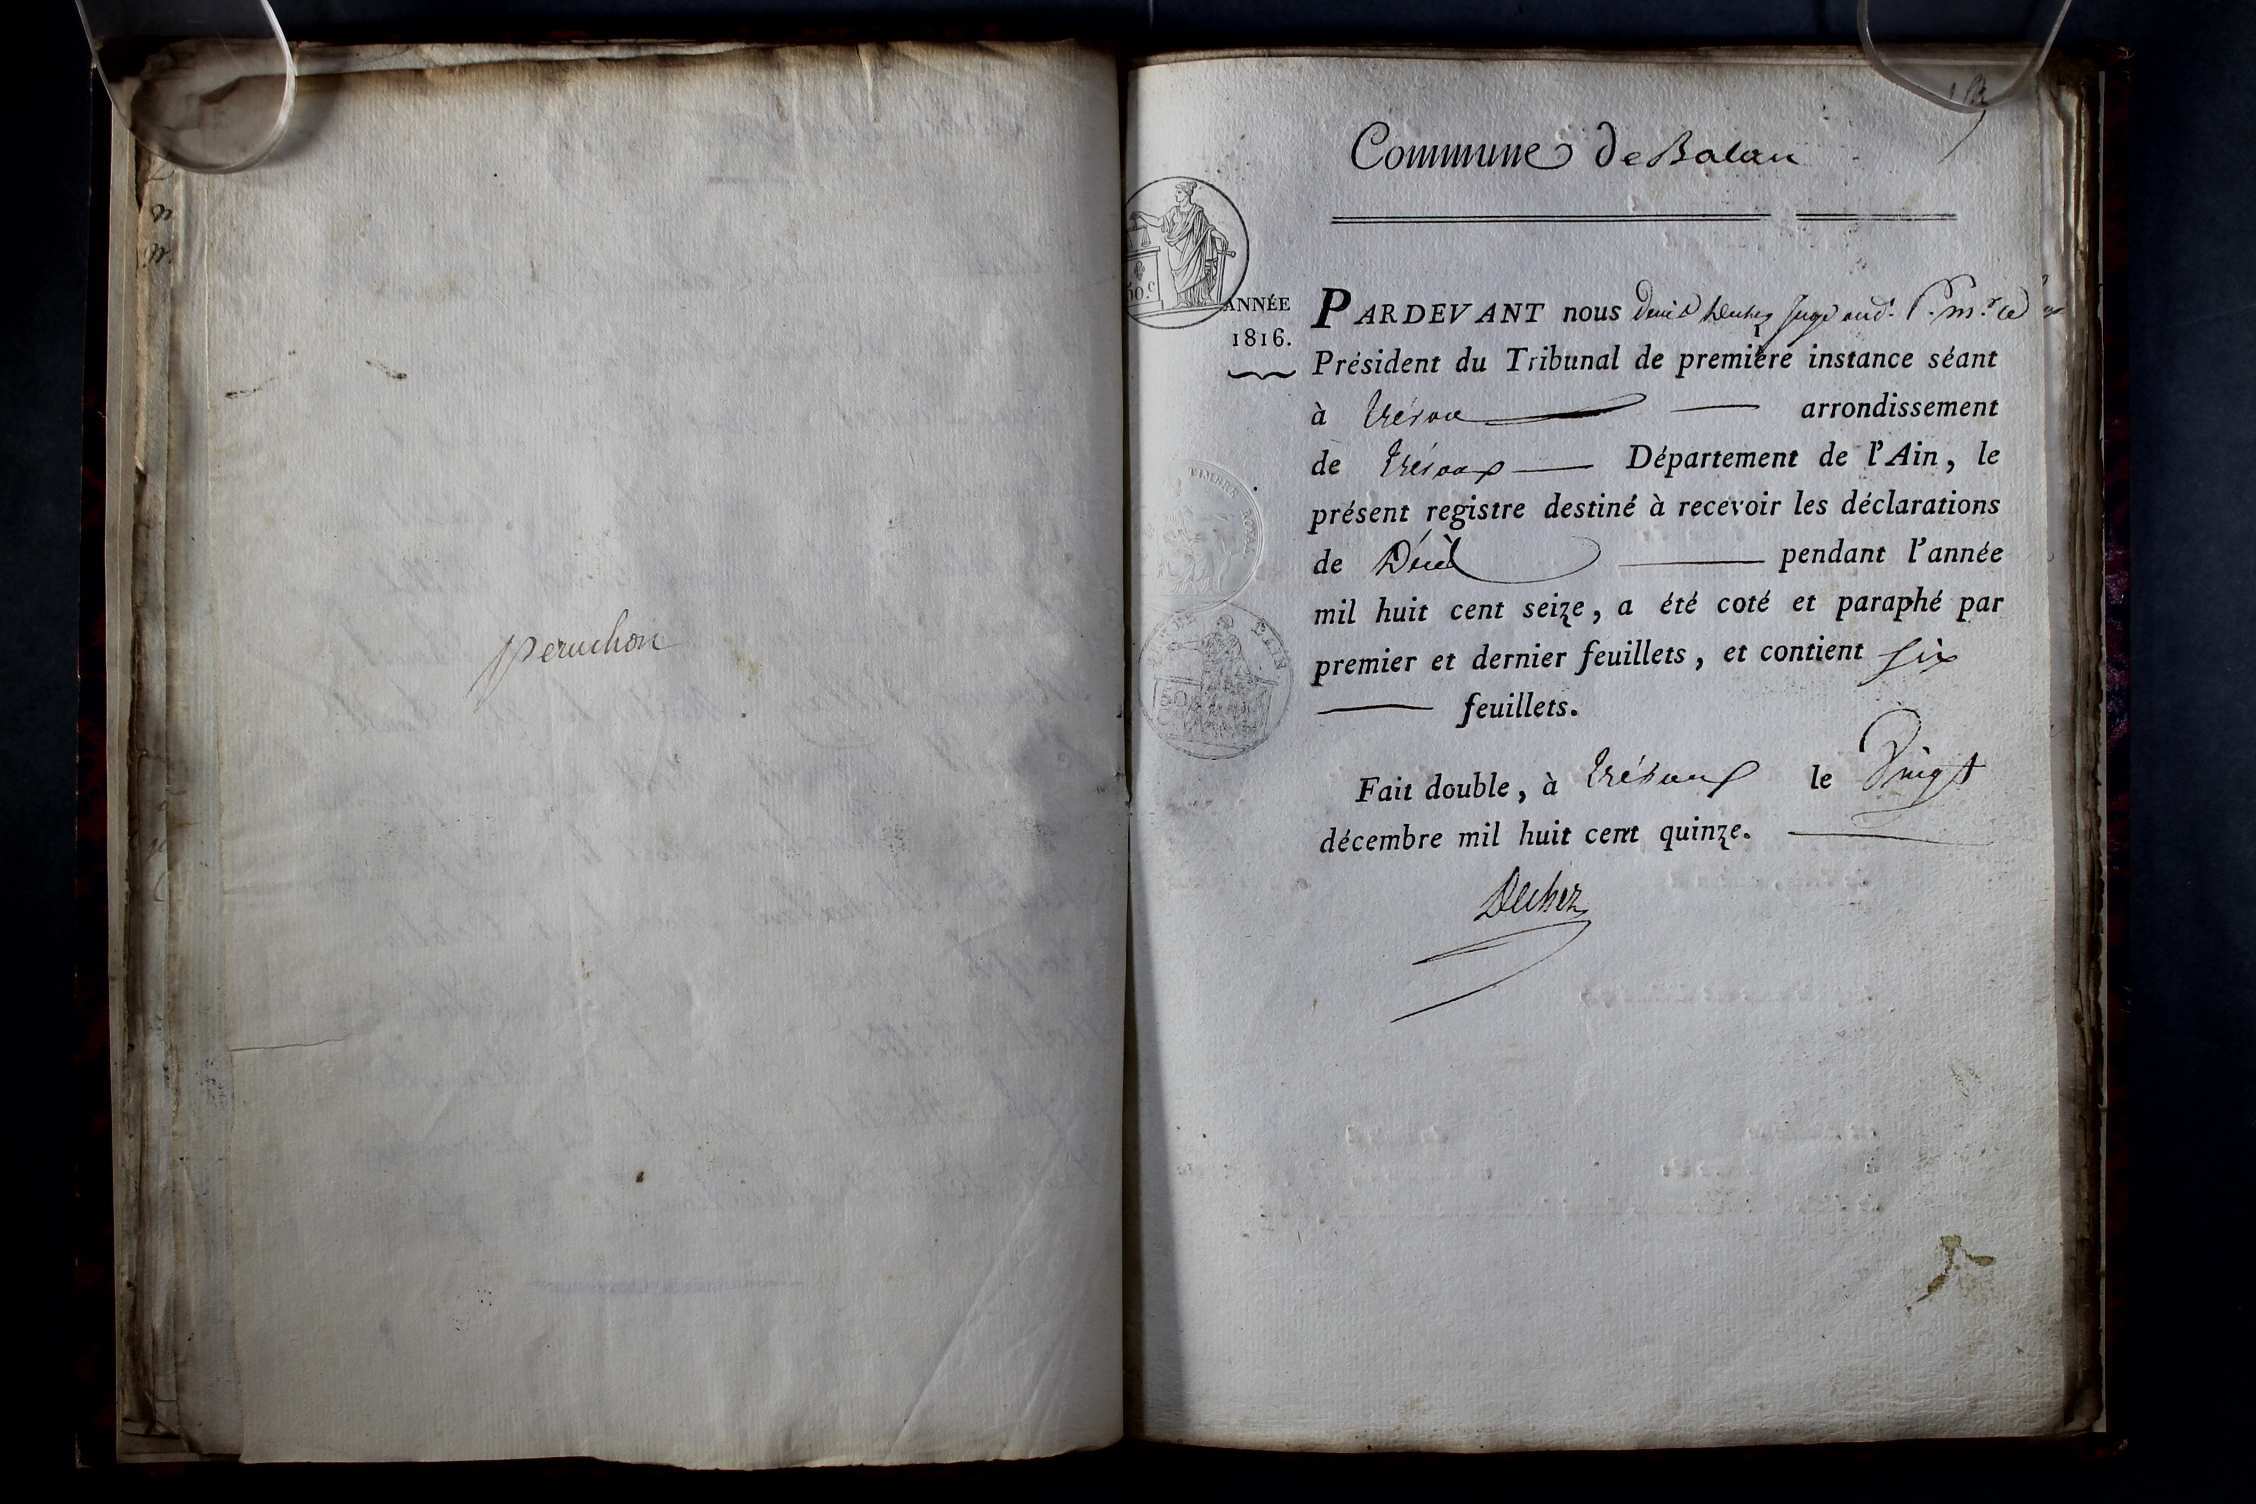 Peruchon
Commune de Balan
50.c
ANNÉE
1816.
PARDEVANT nous Denis Dechez Juge aud. P. mr. le
Président du Tribunal de première instance séant
à Trévoux arrondissement
de Trévoux Département de l'Ain, le
présent registre destiné à recevoir les déclarations
de Décès pendant l'année
mil huit cent seize, a été coté et paraphé par
premier et dernier feuillets, et contient six
feuillets.
TIMBRE ROYAL
AIN
50
Fait double, à Trévoux le Vingt
décembre mil huit cent quinze.
Dechez